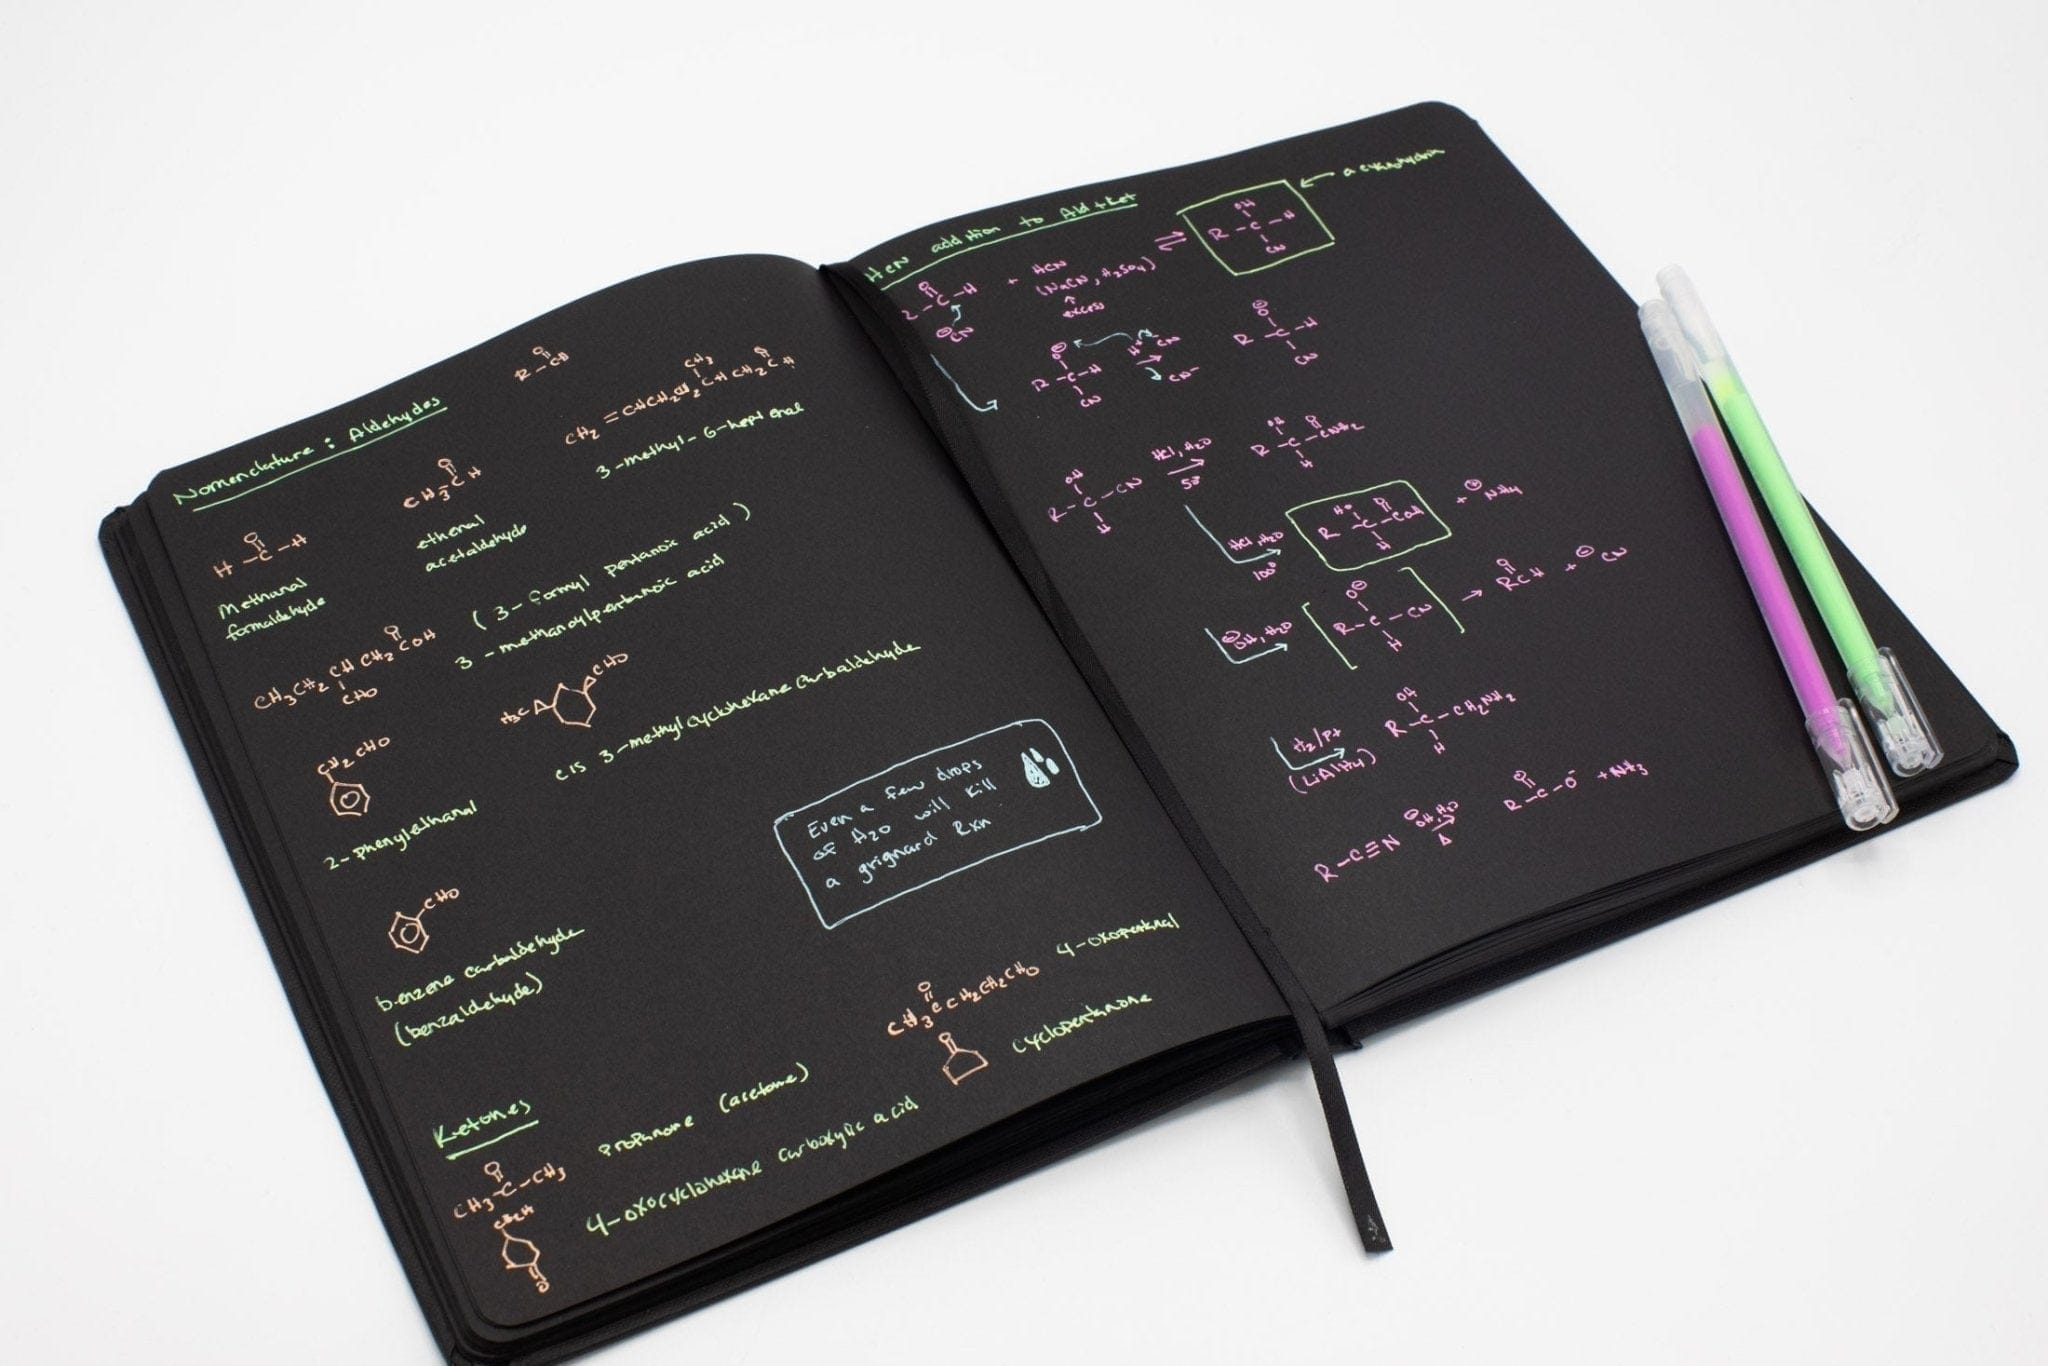 Nomenclature: Aldehydes
R-CH
O
H-C-H
O
Methanal
formaldehyde
CH3CH
O
ethenal
acetaldehyde
CH3
CH2=CHCH2CH2CHCH2CH
O
3-methyl-6-heptenal
CH3CH2CHCH2COH
O
CHO
(3-formyl pentanoic acid)
3-methanoylpentanoic acid
H3C
CHO
cis 3-methylcyclohexane carbaldehyde
CH2CHO
2-phenylethanal
CHO
benzene carbaldehyde
(benzaldehyde)
Even a few drops
of H2O will kill
a grignard Rxn
Ketones
O
CH3-C-CH3
propanone (acetone)
O
4-oxocyclohexane carboxylic acid
O
CH3CCH2CH2CHO
4-oxopentanal
O
cyclopentanone
HCN addition to Ald + Ket
O
C-H
⊖CN
+ HCN
(NaCN, H2SO4)
↑
excess
⇌
OH
R-C-H
CN
← a cyanohydrin
O⊖
R-C-H
CN
H+ CN
→
CN-
O⊖
R-C-H
CN
OH
R-C-CN
H
HCl, H2O
→
50
OH O
R-C-CNH2
H
HCl, H2O
100°
HO O
R-C-COH
H
+ ⊕NH4
⊖OH, H2O
O⊖
R-C-CN
H
→ RCH + ⊖CN
O
H2/Pt
(LiAlH4)
OH
R-C-CH2NH2
H
R-C≡N
⊖OH, H2O
→
Δ
O
R-C-O- + NH3